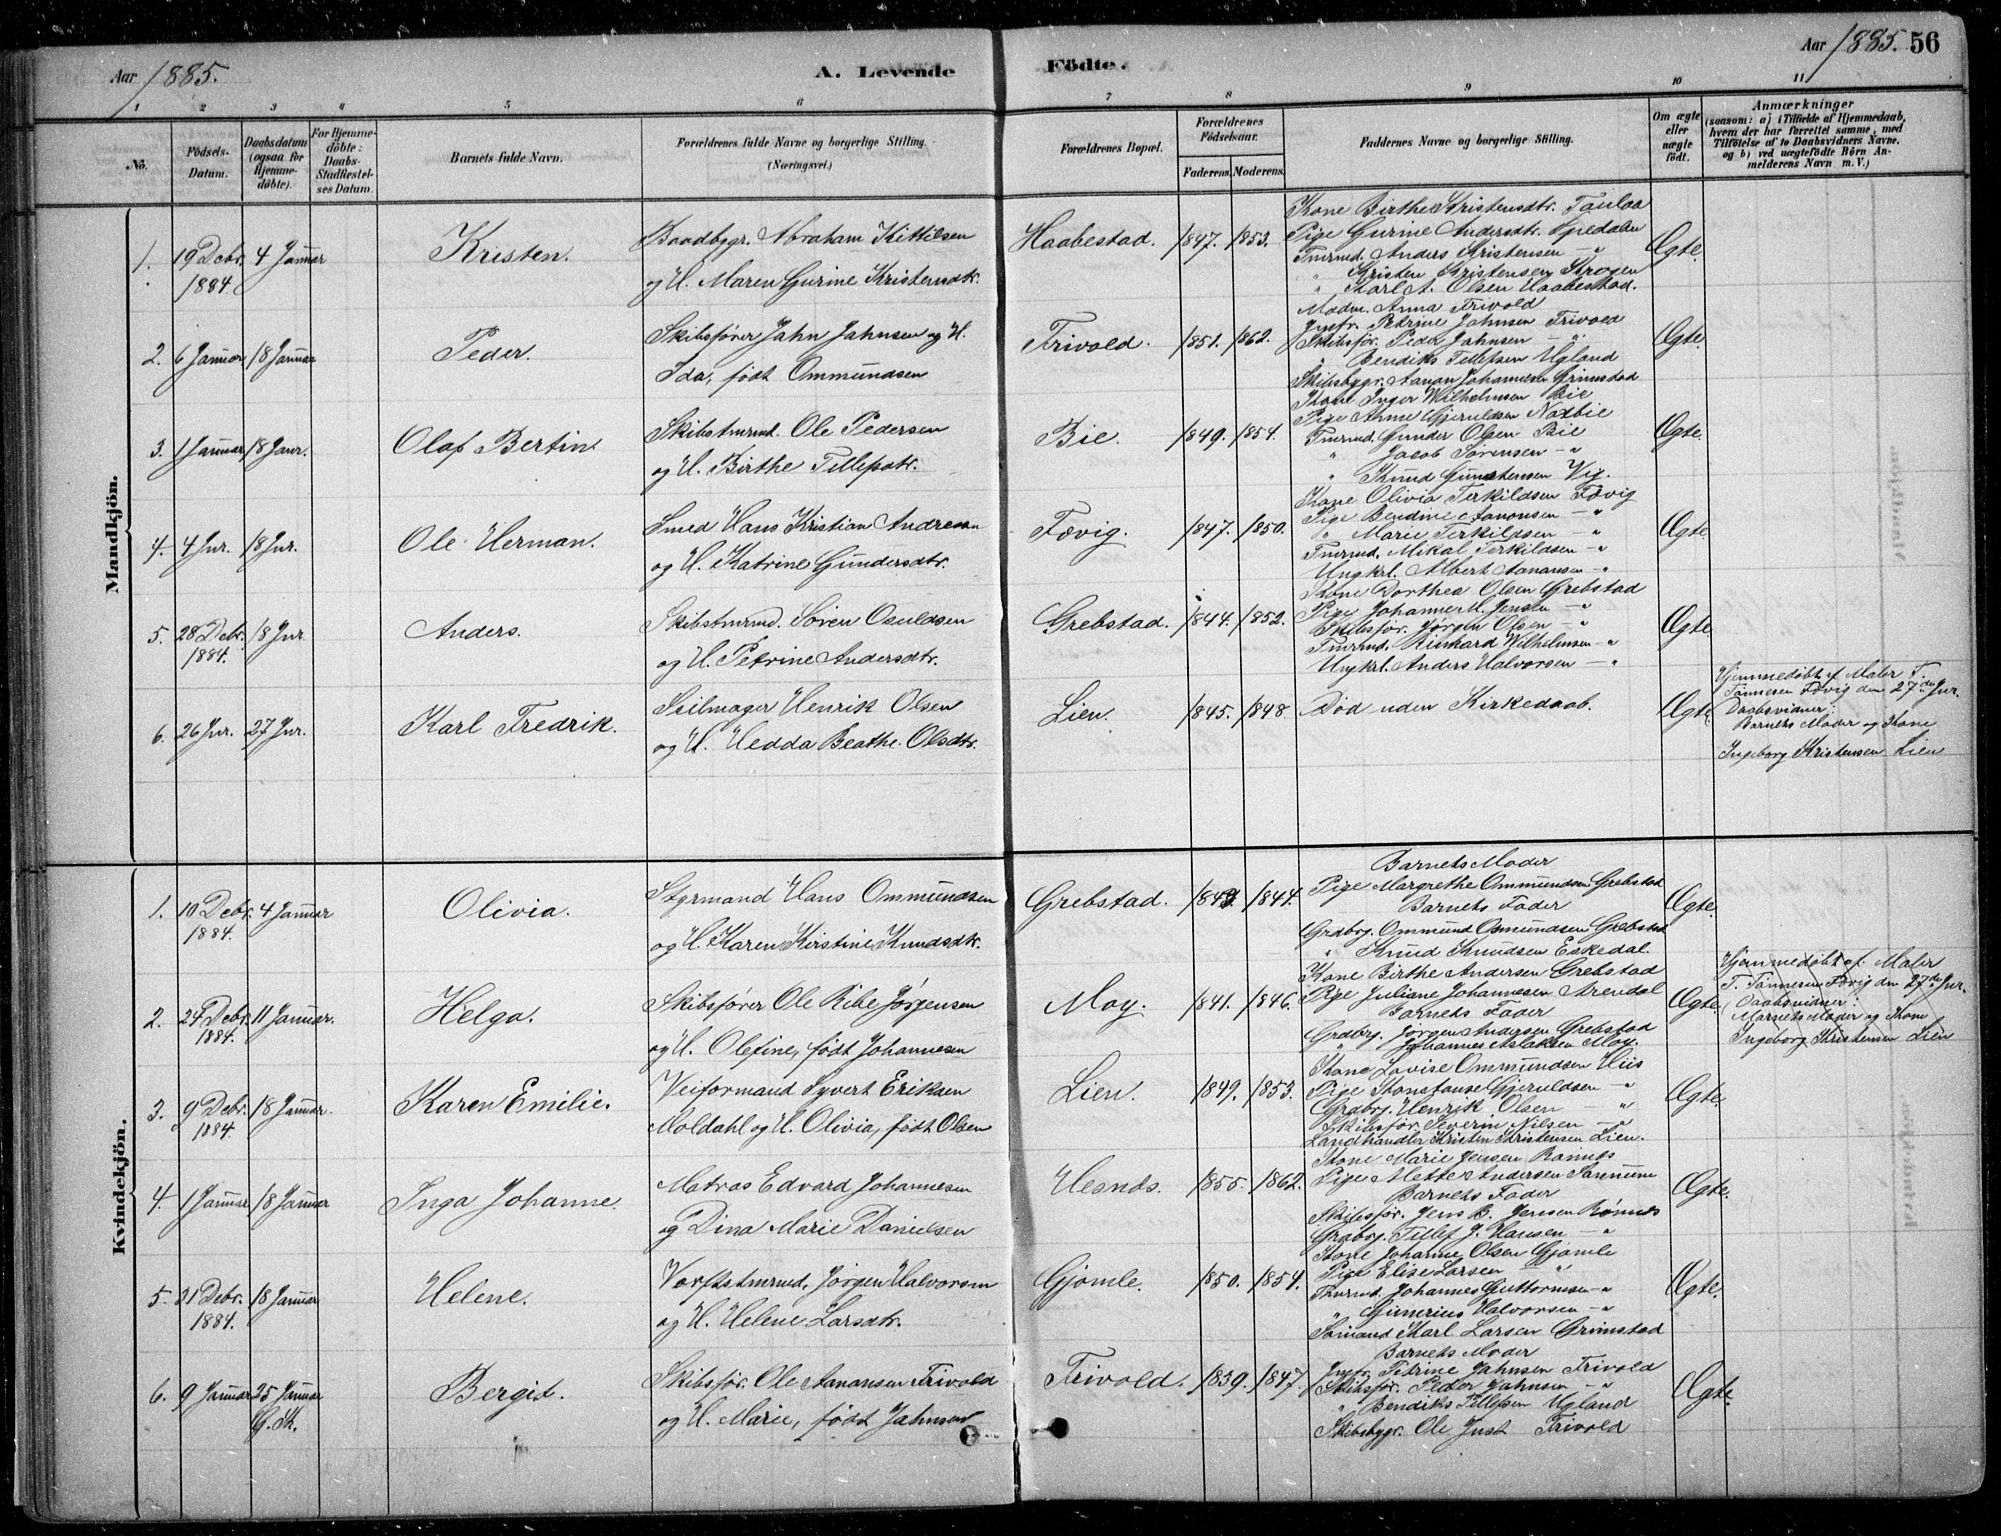 Aar 1885.
A. Levende
Fødte.
Aar 1885. 56
1 2 3 4 5 6 7 8 9 10 11
No.
Fødsels-Datum.
Daabsdatum (ogsaa for Hjemme-døbte).
For Hjemme-døbte: Daabs-Stadfæstel-ses Datum.
Barnets fulde Navn.
Forældrenes fulde Navne og borgerlige Stilling. (Næringsvei.)
Forældrenes Bopæl.
Forældrenes Fødselsaar.
Faderens. Moderens.
Faddernes Navne og borgerlige Stilling.
Om ægte eller uægte født.
Anmærkninger
(saasom: a) i Tilfælde af Hjemmedaab,
hvem der har forrettet samme, med
Tilføielse af to Daabsvidners Navne.
og b) ved uægtefødte Børn An-
melderens Navn m. V.)
Mandkjön.
1. 19 Debr. 1884. 4 Januar
Kristen.
Baadbygr. Abraham Kittilsen
og H. Maren Gurine Kristensdtr.
Haabestad. 1847. 1853.
Kone Birthe Kristensdtr.
Pige Gurine Andersdtr.
Tmrmd. Anders Kristensen – "
" Kristen Kristensen
" Karl A. Olsen Haabestad.
Ægte.
2. 6 Januar 18 Januar
Peder.
Skibsfører Jahn Jahnsen og H.
Ida, født Ommundsen
Trivold. 1851. 1862.
Madm. Anna Trivold
Jmfr. Petrine Jahnsen Trivold
Skibsfør. Peder Jahnsen – "
" Bendiks Tellefsen Ugland
Skibsbygr. Aanon Johannesen Grimstad
Ægte.
3. 1 Januar 18 Janr.
Olaf Bertin.
Skibstmrmd. Ole Pedersen
og H. Birthe Tellefsdtr.
Bie. 1849. 1854.
Kone Inger Wilhelmsen Bie
Pige Anne Gjeruldsen
Tmrmd. Gunder Olsen Bie
" Jacob Sørensen – "
" Knud Gundersen Vig.
Ægte.
4. 4 Jnr. 18 Jnr.
Ole Herman.
Smed Hans Kristian Andresen
og H. Katrine Gundersdtr.
Fævig. 1847. 1850.
Kone Olivia Terkildsen Fævig
Pige Bendine Aanonsen – "
" Marie Terkildsen – "
Tmrmd. Mikal Terkildsen – "
Ungkrl. Albert Aanonsen – "
Ægte.
5. 28 Debr. 1884. 18 Jnr.
Anders.
Skibstmrmd. Søren Osuldsen
og H. Petrine Andersdtr.
Grebstad. 1844. 1852.
Kone Dorthea Olsen Grebstad
Pige Johanne M. Jensen – "
Skibsfør. Jørgen Olsen – "
Tmrmd. Reinhard Wilhelmsen – "
Ungkrl. Anders Halvorsen – "
Ægte
6. 26 Jnr. 27 Jnr.
Karl Fredrik.
Seilmager Henrik Olsen
og H. Hedda Beathe Olsdtr.
Lien. 1845. 1848.
Død uden Kirkedaab.
Ægte
Hjemmedøbt af Maler F.
Tønnesen Fævig den 27de Jnr.
Daabsvidner:
Barnets Moder og Kone
Ingeborg Kristensen Lien
Kvindekjön.
1. 10 Debr. 1884. 4 Januar
Olivia.
Styrmand Hans Ommundsen
og H. Karen Kirstine Knudsdtr.
Grebstad. 1844.
Barnets Moder
Pige Margrethe Ommundsen Grebstad
Barnets Fader
Grdbrg. Ommund Ommundsen Grebstad
" Knud Knudsen Eskedal.
Ægte.
2. 24 Debr. 1884. 11 Januar.
Helga.
Skibsfører Ole Ribe Jørgensen
og H. Olefine, født Johannesen
Moy. 1841. 1846.
Kone Birthe Andersen Grebstad
Pige Juliane Johannesen Arendal
Barnets Fader
Grdbrg. Jørgen Andersen Grebstad
" Johannes Aslaksen Moy.
Ægte
Hjemmedøbt af Maler
F. Tønnesen Fævig den 27de Jnr.
Daabsvidner:
Barnets Moder og Kone
Ingeborg Kristensen Lien
3. 9 Debr. 1884. 18 Januar.
Karen Emilie.
Veiformand Syvert Eriksen
Moldahl og H. Olivia, født Olsen
Lien. 1849. 1853.
Kone Lovise Ommundsen Hiis
Pige Konstanse Gjeruldsen – "
Grdbrg. Henrik Olsen – "
Skibsfør. Severin Nilsen – "
Landhandler Kristen Kristensen Lien.
Ægte.
4. 1 Januar 18 Januar
Inga Johanne.
Matros Edvard Johannesen
og Dina Marie Danielsen
Hesnds. 1855. 1862.
Kone Marie Jensen
Pige Mette Andersen
Barnets Fader
Skibsfør. Jens B. Jensen Rønnes
Grdbrg. Tellef J. Hansen – "
Ægte.
5. 31 Debr. 1884. 18 Januar
Helene.
Værftstmrmd. Jørgen Halvorsen
og H. Helene Larsdtr.
Gjømle. 1850. 1854.
Kone Johanne Olsen Gjømle
Pige Elise Larsen – "
Tmrmd. Johannes Guttormsen – "
" Gunerius Halvorsen – "
Sømand Karl Larsen Grimstad
Ægte.
6. 9 Januar 25 Januar
Bergit.
Skibsfør. Ole Aanonsen Trivold
og H. Marie, født Jahnsen
Trivold. 1839. 1847.
Barnets Moder
Jmfr. Petrine Jahnsen Trivold
Skibsfør. Peder Jahnsen – "
" Bendiks Tellefsen Ugland
Skibsbygr. Ole Just Trivold
Ægte.